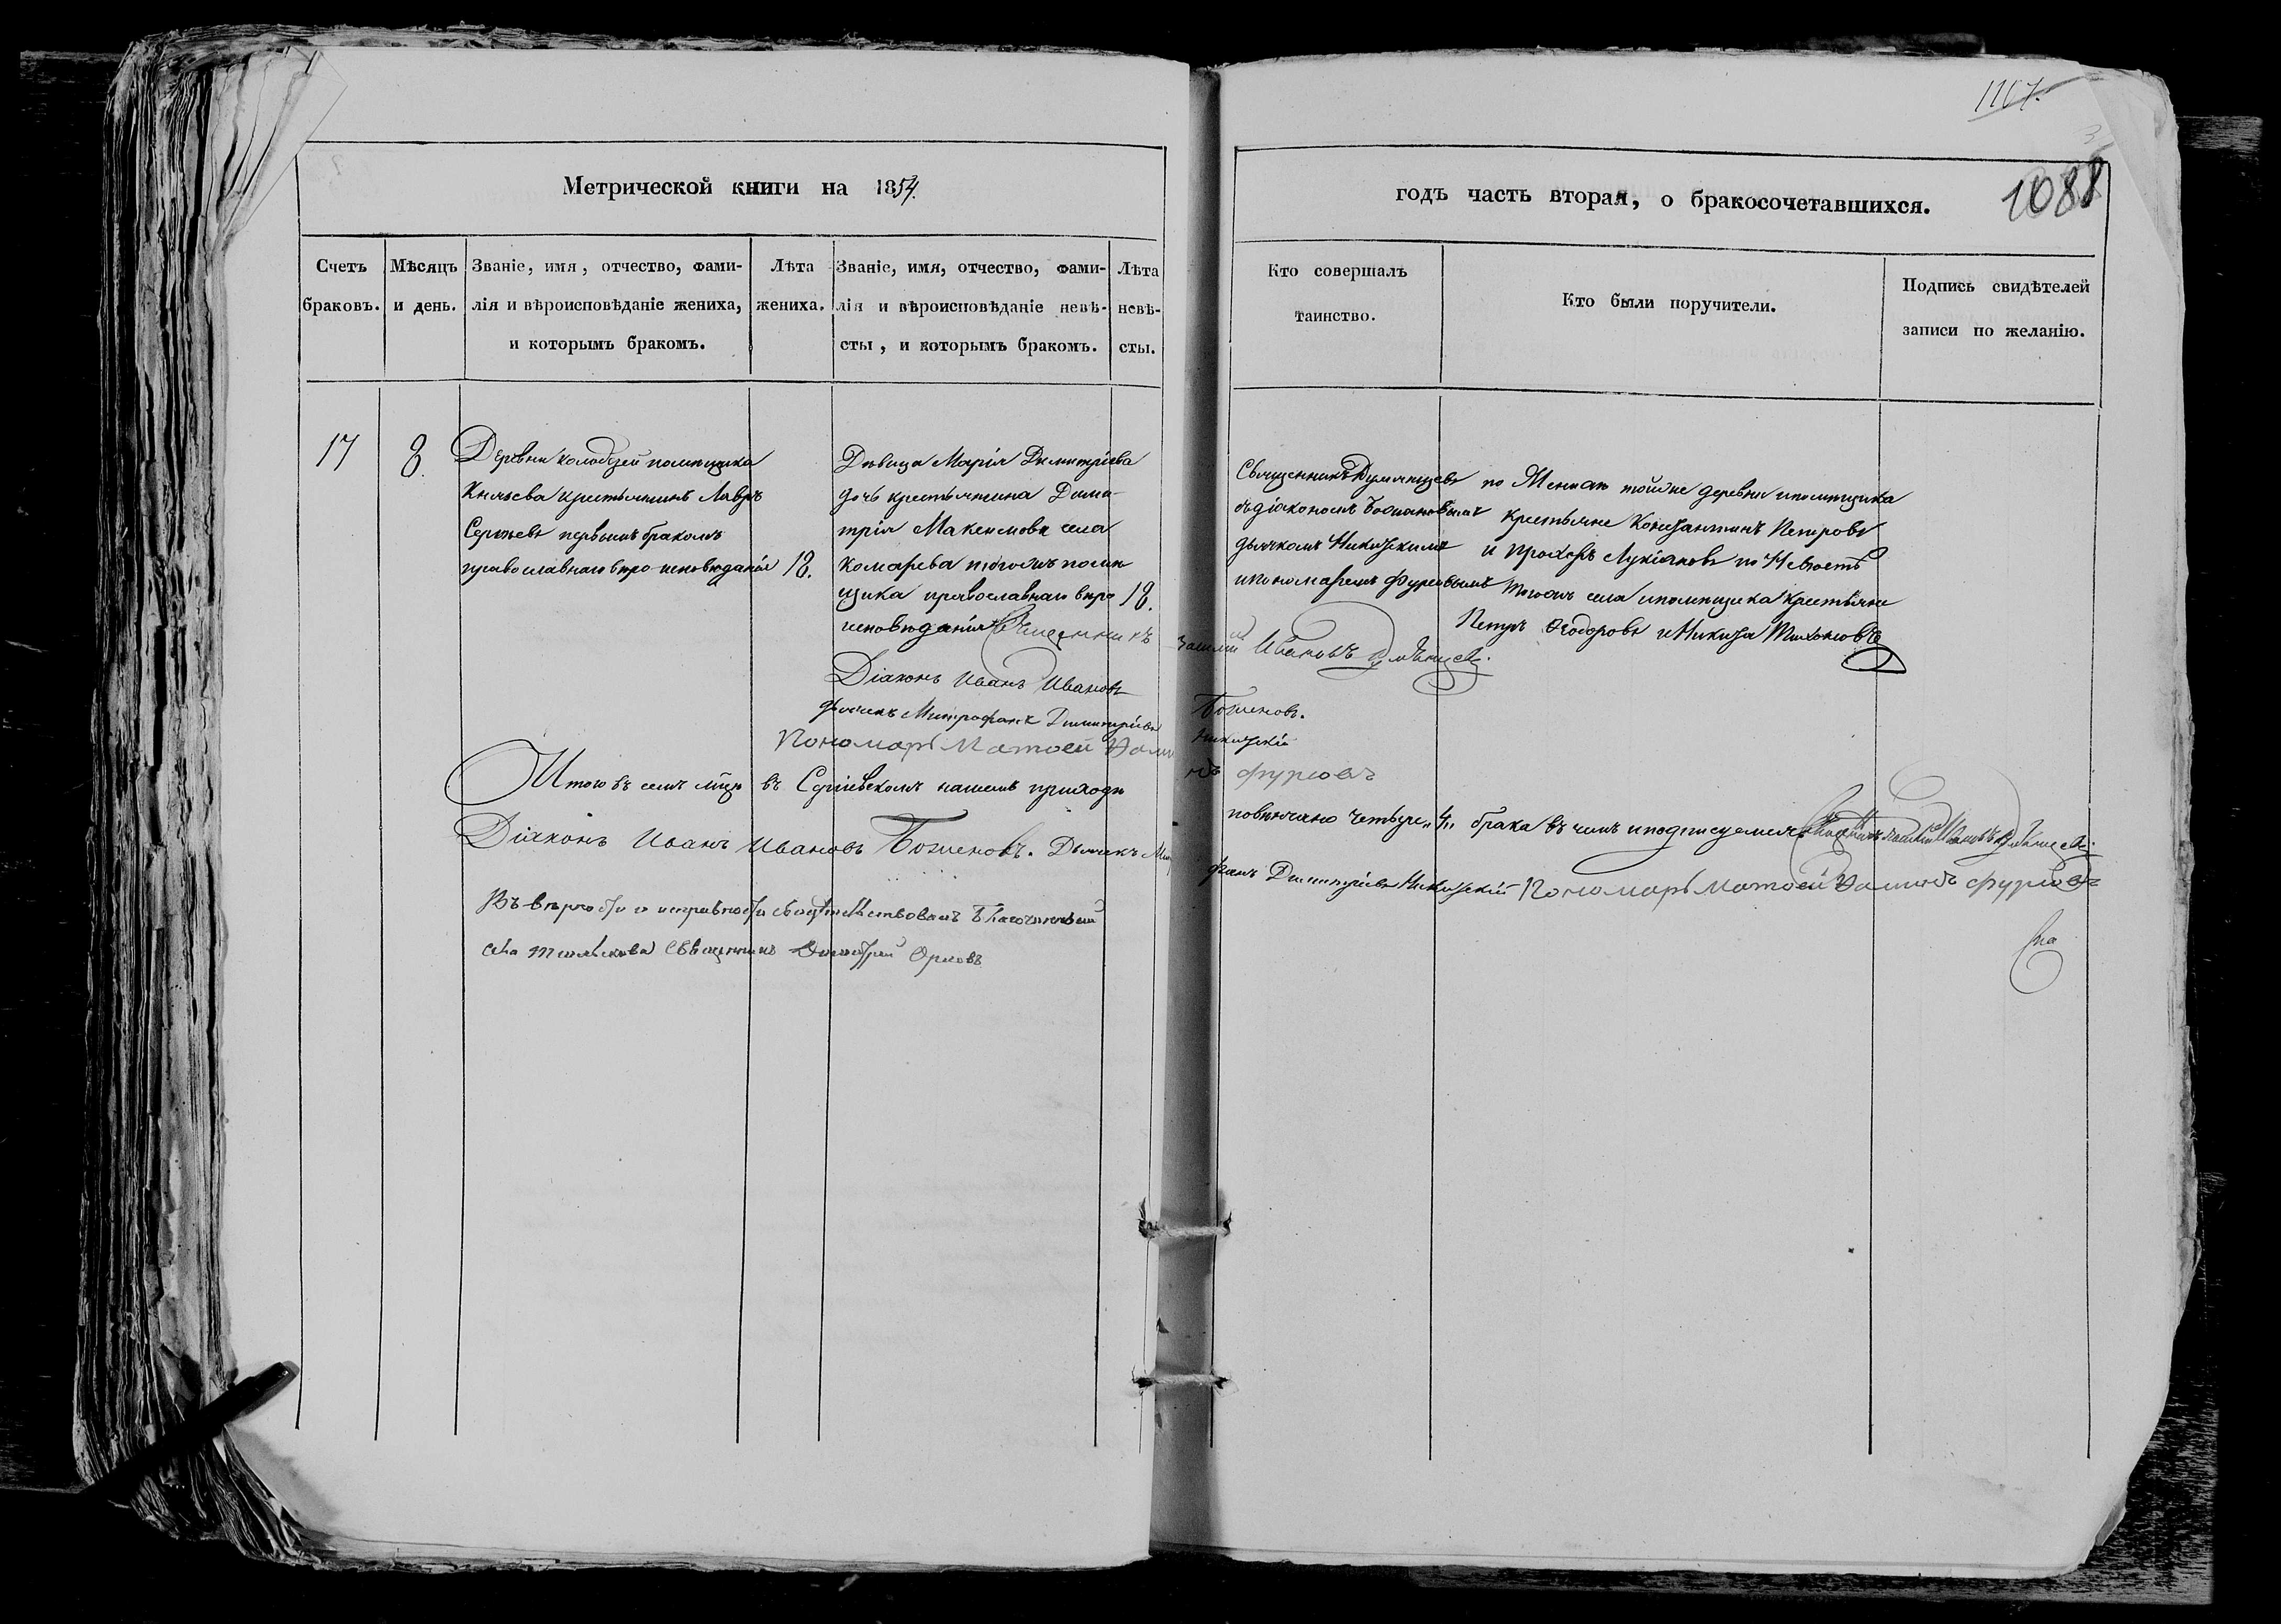 1107.
3
1088
Метрической книги на 1854.
годъ часть вторая, о бракосочетавшихся.
Счетъ браковъ.
Мѣсяцъ и день.
Званіе, имя, отчество, фами-
лія и вѣроисповѣданіе жениха,
и которымъ бракомъ.
Лѣта
жениха.
Званіе, имя, отчество, фами-
лія и вѣроисповѣданіе невѣ-
сты, и которымъ бракомъ.
Лѣта
невѣ-
сты.
Кто совершалъ
таинство.
Кто были поручители.
Подпись свидѣтелей
записи по желанію.
17
8.
Деревни Колодезей помѣщика
крестьянинъ Лавръ
Сергѣевъ первымъ бракомъ
православнаго вѣро-исповѣданія
18.
Дѣвица Марія Димитріева
дочь крестьянина Дими-
трія Максимова села
Комарева тогожъ помѣ
щика православнаго вѣро
исповѣданія
18.
Священникъ
съ діакономъ
дьячкомъ Никитскимъ
и пономаремъ Фурсовымъ
по Женихѣ тойже деревни и помѣщика
крестьяне Константинъ Петровъ
и Прохоръ Лукіановъ по Невѣстѣ
тогожъ села и помѣщика крестьяне
Петръ Ѳеодоровъ и Никита Тихоновъ
Священникъ Ивановъ
Діаконъ Иванъ Ивановъ Боженовъ.
дьячекъ Митрофанъ Димитріевъ Никитскій
Пономарь Матвей Фурсовъ
Итого въ семъ мцѣ въ Сергіевскомъ нашемъ приходѣ повѣнчано четыре "4" брака въ чемъ и подписуемся Священникъ Ивановъ
Діаконъ Иванъ Ивановъ Боженовъ. Дьячекъ Митрофанъ Димитріевъ Никитскій Пономарь Матвей Фурсовъ
Въ вѣрности и исправности свидѣтельствовалъ Благочинный
села Священникъ Димитрій Орловъ